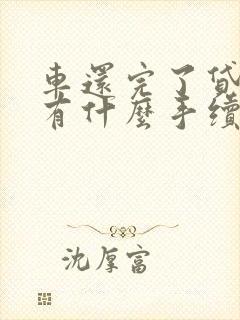 車還完了貸
有什麼手續
沈厚富